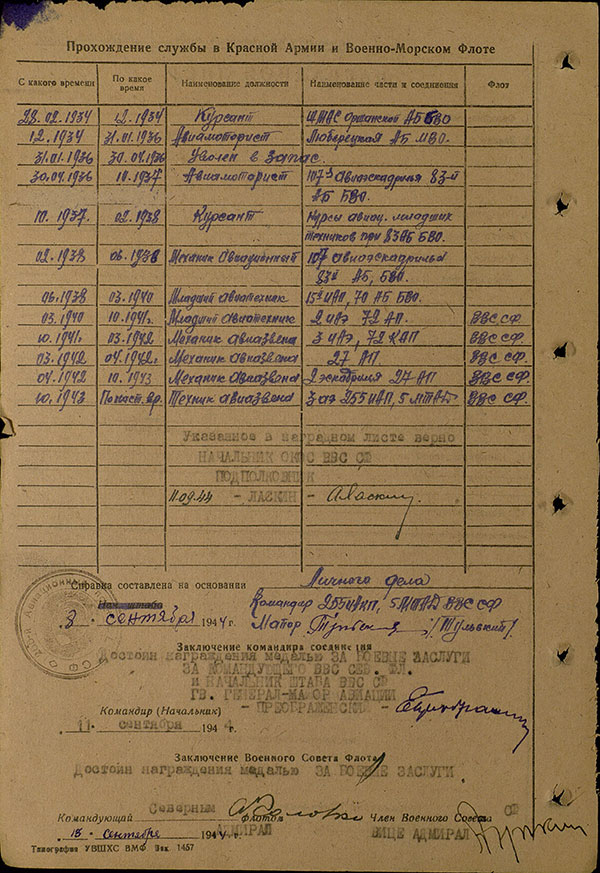 Прохождение службы в Красной Армии и Военно-Морском Флоте
С какого времени По какое время Наименование должности Наименование части и соединения Флот
28.02.1934 12.1934 Курсант ШМАС Оршанской АБ БВО
12.1934 31.01.1936 Авиамоторист Люберецкая АБ МВО.
31.01.1936 30.04.1936 Уволен в запас.
30.04.1936 10.1937 Авиамоторист 107й авиаэскадрилья 83-й
АБ БВО.
10.1937. 02.1938 Курсант Курсы авиац. младших
техников при 83АБ БВО.
02.1938 06.1938 Механик авиационный 107 авиаэскадрилья
83й АБ, БВО.
06.1938 03.1940 Младший авиатехник 15й ИАП, 70 АБ БВО.
03.1940 10.1941г Младший авиатехник 2 иАЭ, 72 АП. ВВС СФ.
10.1941г 03.1942 Механик авиазвена 3 иАЭ, 72 КАП ВВС СФ
03.1942 04.1942г Механик авиазвена 27 АП ВВС СФ.
04.1942 10.1943 Механик авиазвена 2 эскадрилья 27 АП ВВС СФ.
10.1943 По наст. вр. Техник авиазвена 3 аэ 255 ИАП, 5 МТАД ВВС СФ.
Указанное в наградном листе верно
НАЧАЛЬНИК ОКОС ВВС СФ
ПОДПОЛКОВНИК
11.09.44 - ЛАЗКИН -
Справка составлена на основании Личного дела
Нач. штаба Командир 255ИАП, 5 МТАД ВВС СФ
8 . сентября 1944 г. Майор /Тульский/
Заключение командира соединения
Достоин награждения медалью ЗА БОЕВЫЕ ЗАСЛУГИ
ЗА КОМАНДУЮЩЕГО ВВС СЕВ. ФЛ.
И НАЧАЛЬНИК ШТАБА ВВС СФ
ГВ. ГЕНЕРАЛ-МАЙОР АВИАЦИИ
- ПРЕОБРАЖЕНСКИЙ -
Командир (Начальник)
11 сентября 1944
Заключение Военного Совета Флота
Достоин награждения медалью ЗА БОЕВЫЕ ЗАСЛУГИ
Северным СФ
Командующий флотом Член Военного Совета
АДМИРАЛ ВИЦЕ АДМИРАЛ
15 . сентября 1944 г.
Типография УВШХС ВМФ. Зак. 1457